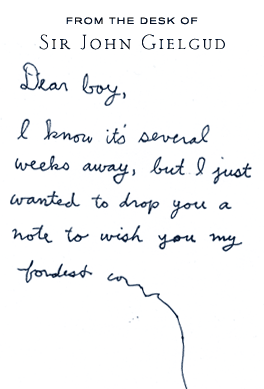 FROM THE DESK OF
SIR JOHN GIELGUD
Dear boy,
I know it's several
weeks away, but I just
wanted to drop you a
note to wish you my
fondest